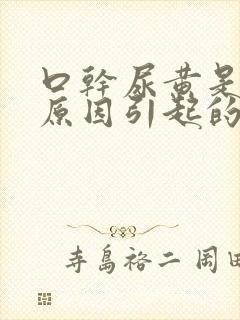 口幹尿黄是
原因引起的
寺島裕二 岡田